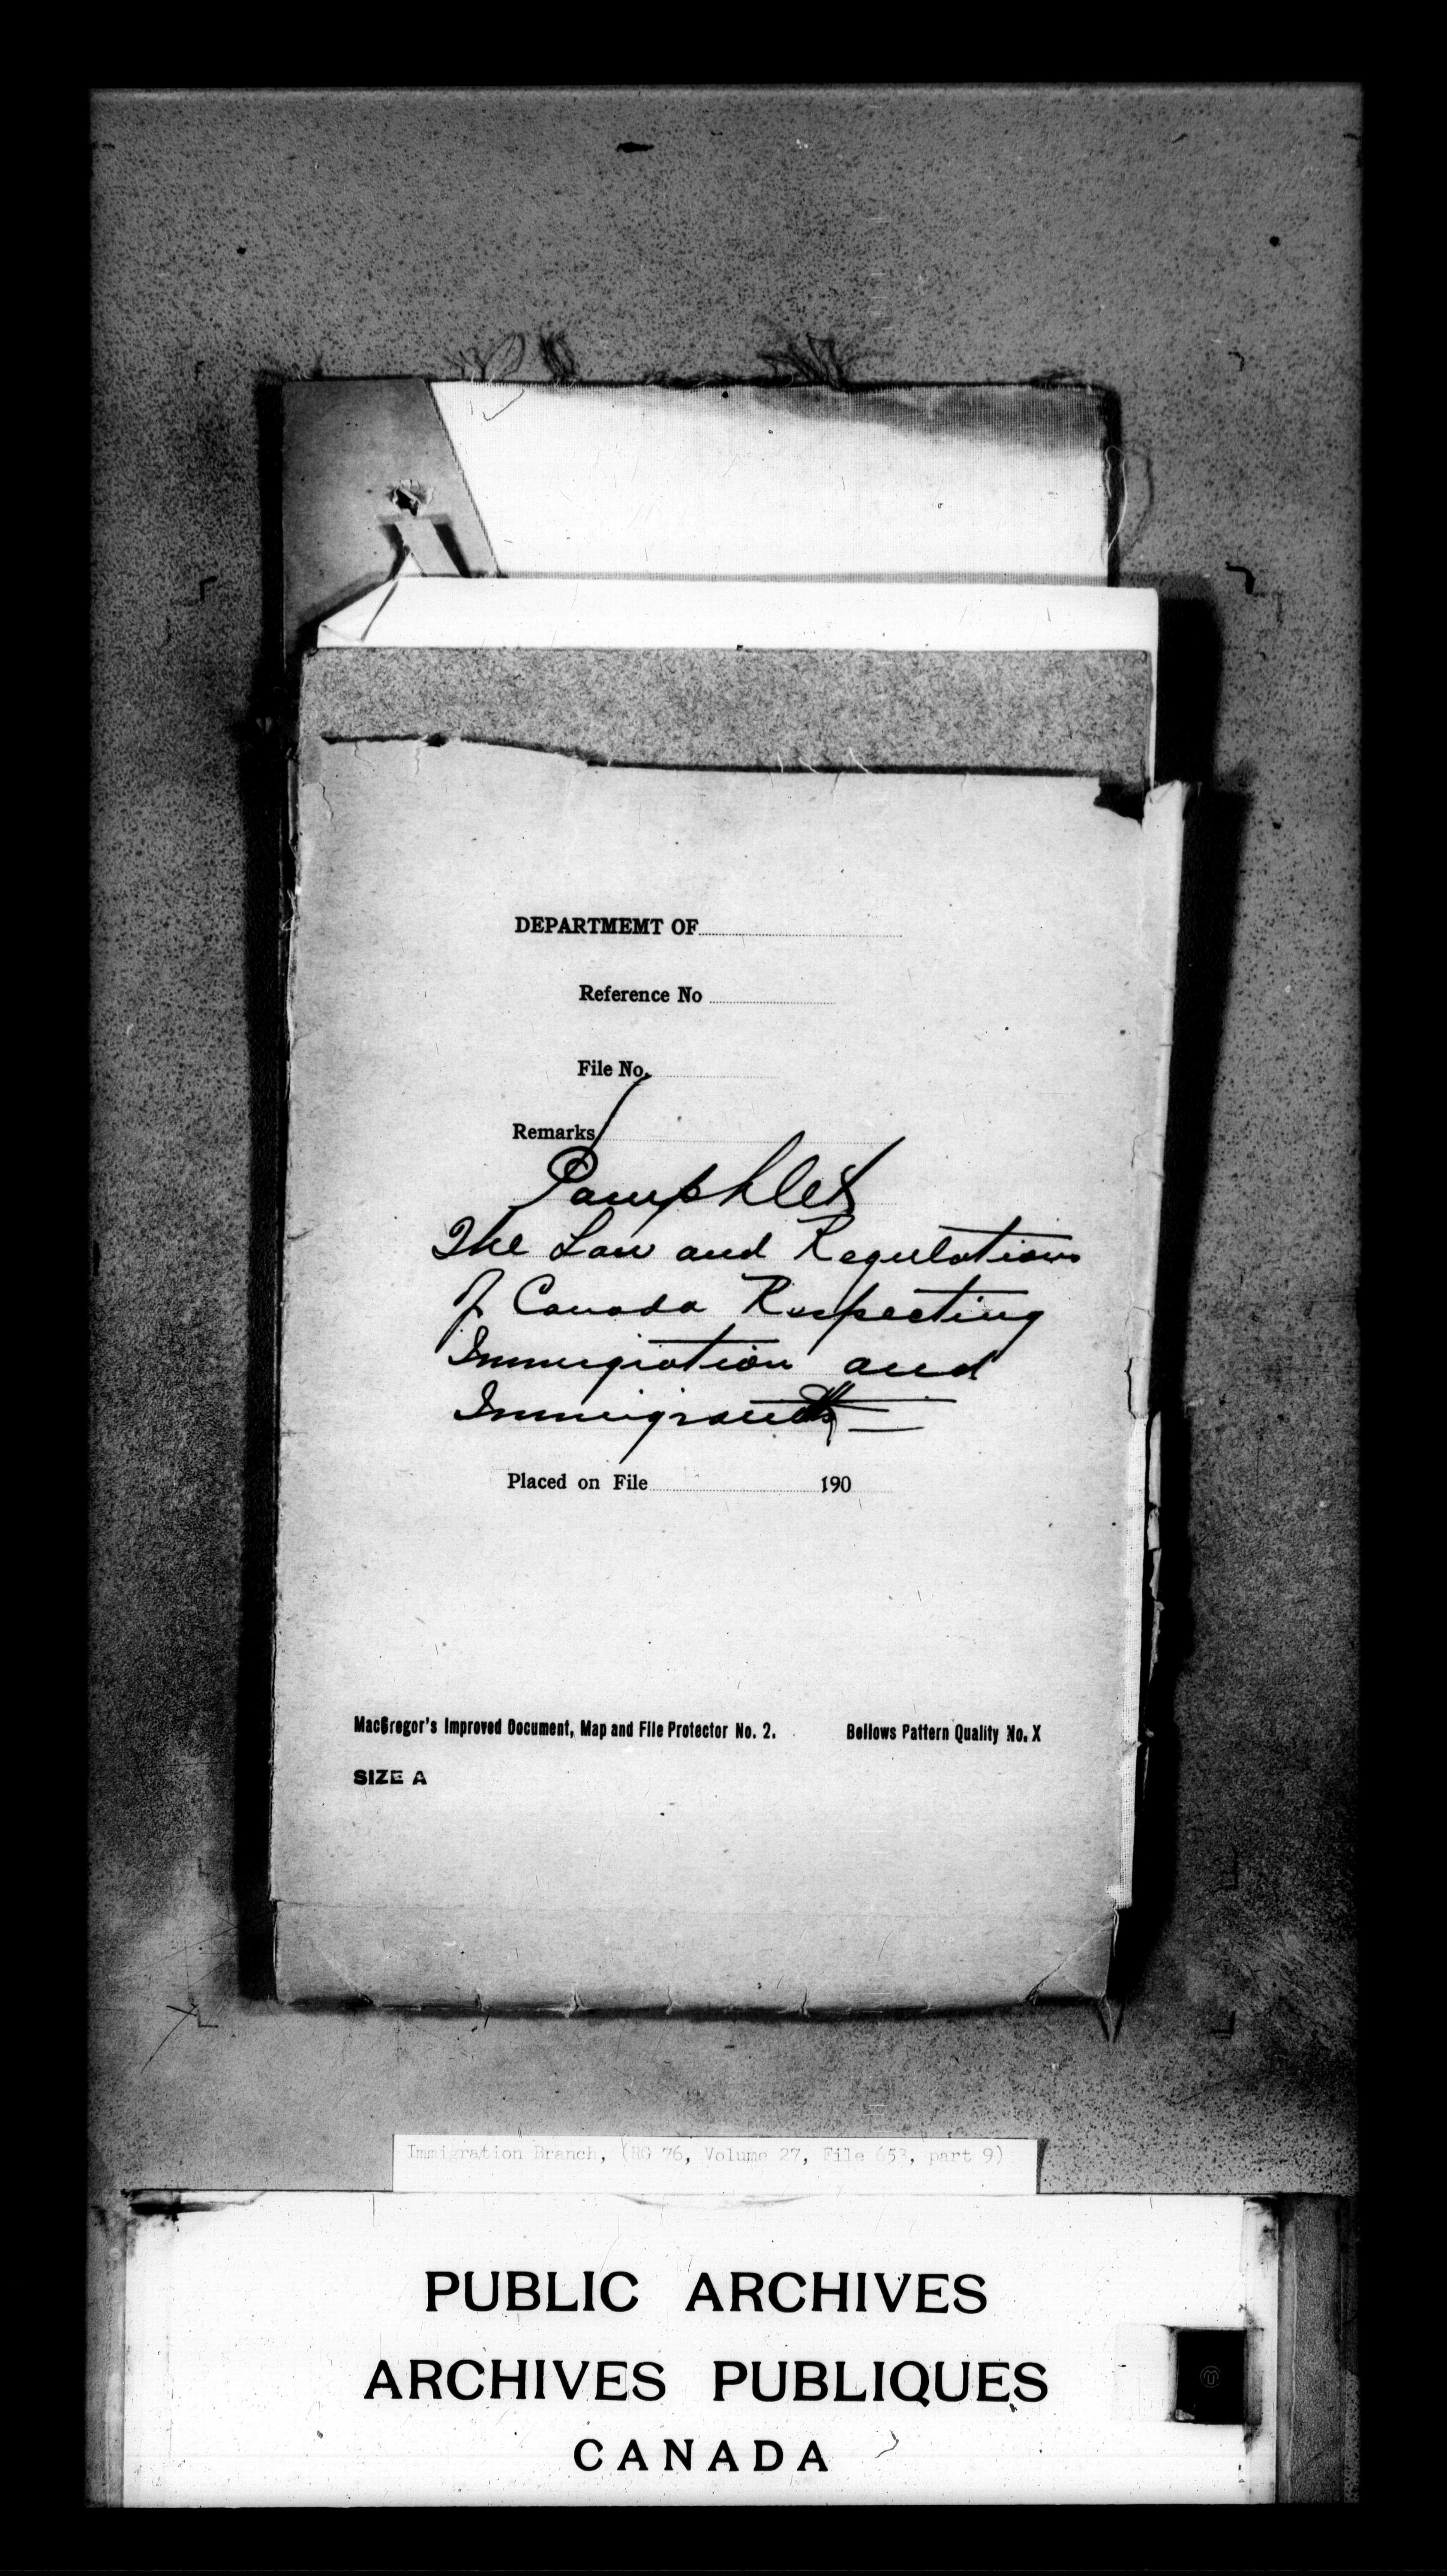 DEPARTMEMT OF
Reference No
File No.
Remarks
Pamphlet
The Law and Regulations
of Canada Respecting
Immigration and
Immigrants
Placed on File 190
MacGregor's Improved Document, Map and File Protector No. 2. Bellows Pattern Quality No. X
SIZE A
Immigration Branch, (RG 76, Volume 27, File 653, part 9)
PUBLIC ARCHIVES
ARCHIVES PUBLIQUES
CANADA